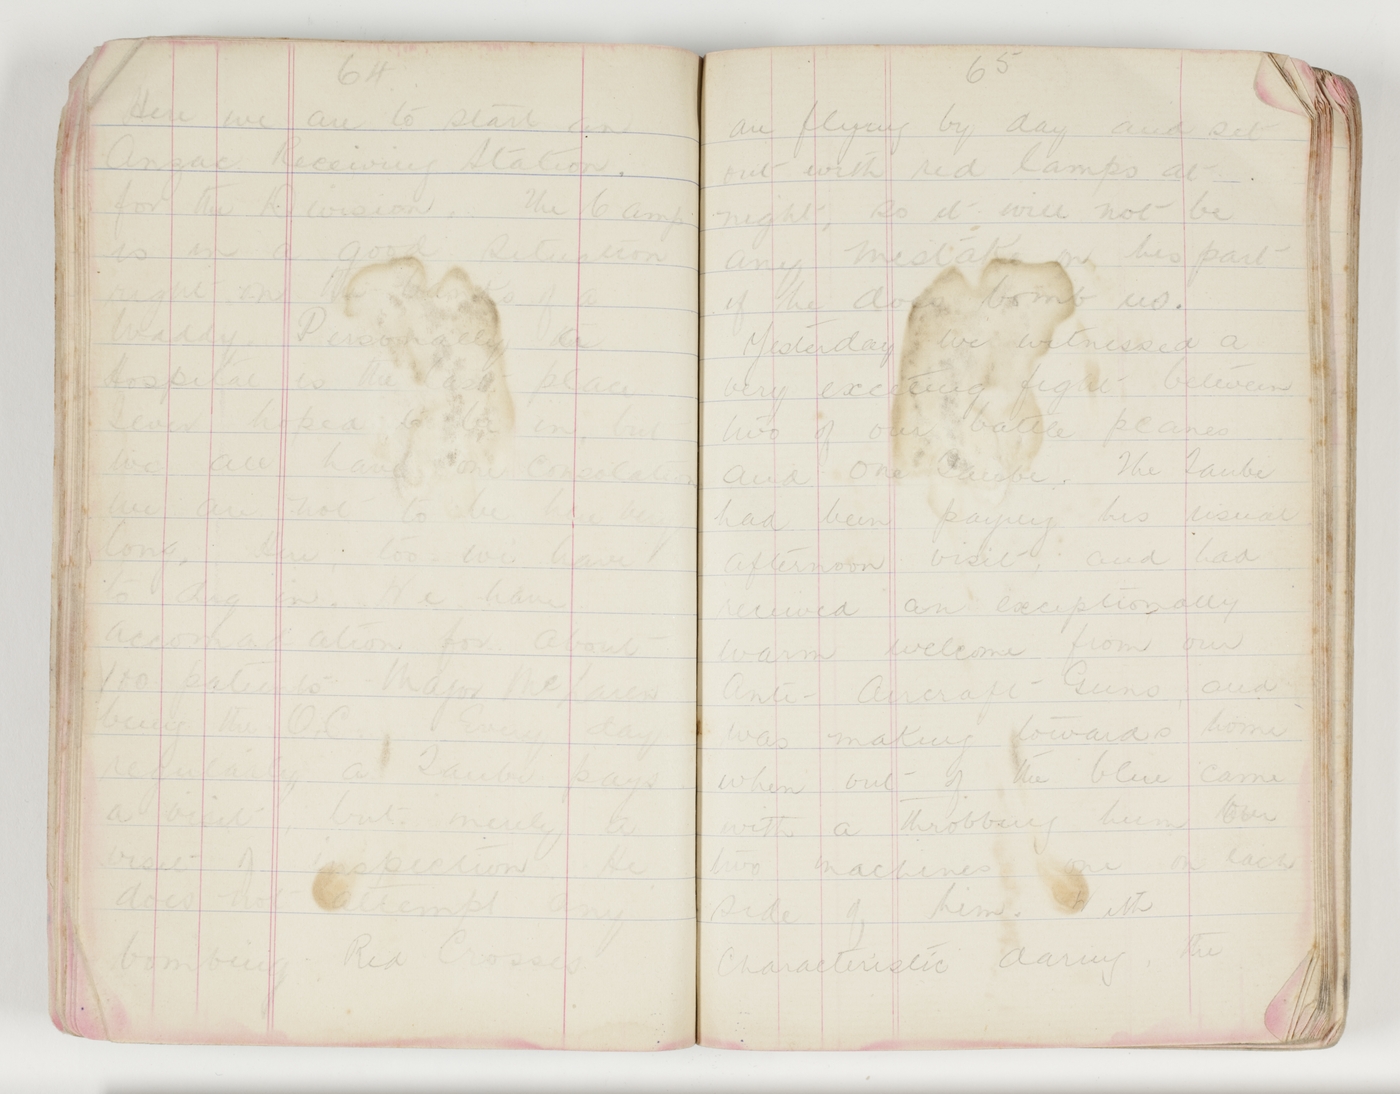 64
Here we are to start an
Anzac Receiving Station.
for the Division. The Camp
is in a good situation
right on the banks of a
Waddy. Personally the
hospital is the last place
I ever hoped to be in, but
we all have one consolation
we are not to be here very
long. Here, too we have
to dig in. We have
accomadation for about
100 patients Major McLaren
being the O.C. Every day
regularly a Taube pays
a visit, but merely a
visit of inspection. He
does not attempt any
bombing. Red Crosses
65
are flying by day and set
out with red lamps at
night, so it will not be
any mistake on his part
if he does bomb us.
Yesterday we witnessed a
very exciting fight between
two of our battle planes
and one Taube. The Taube
had been paying his usual
afternoon visit, and had
received an exceptionally
warm welcome from our
Anti-Aircraft Guns, and
was making towards home
when out of the blue came
with a throbbing hum
two machines one on each
side of him. With
characteristic daring, the